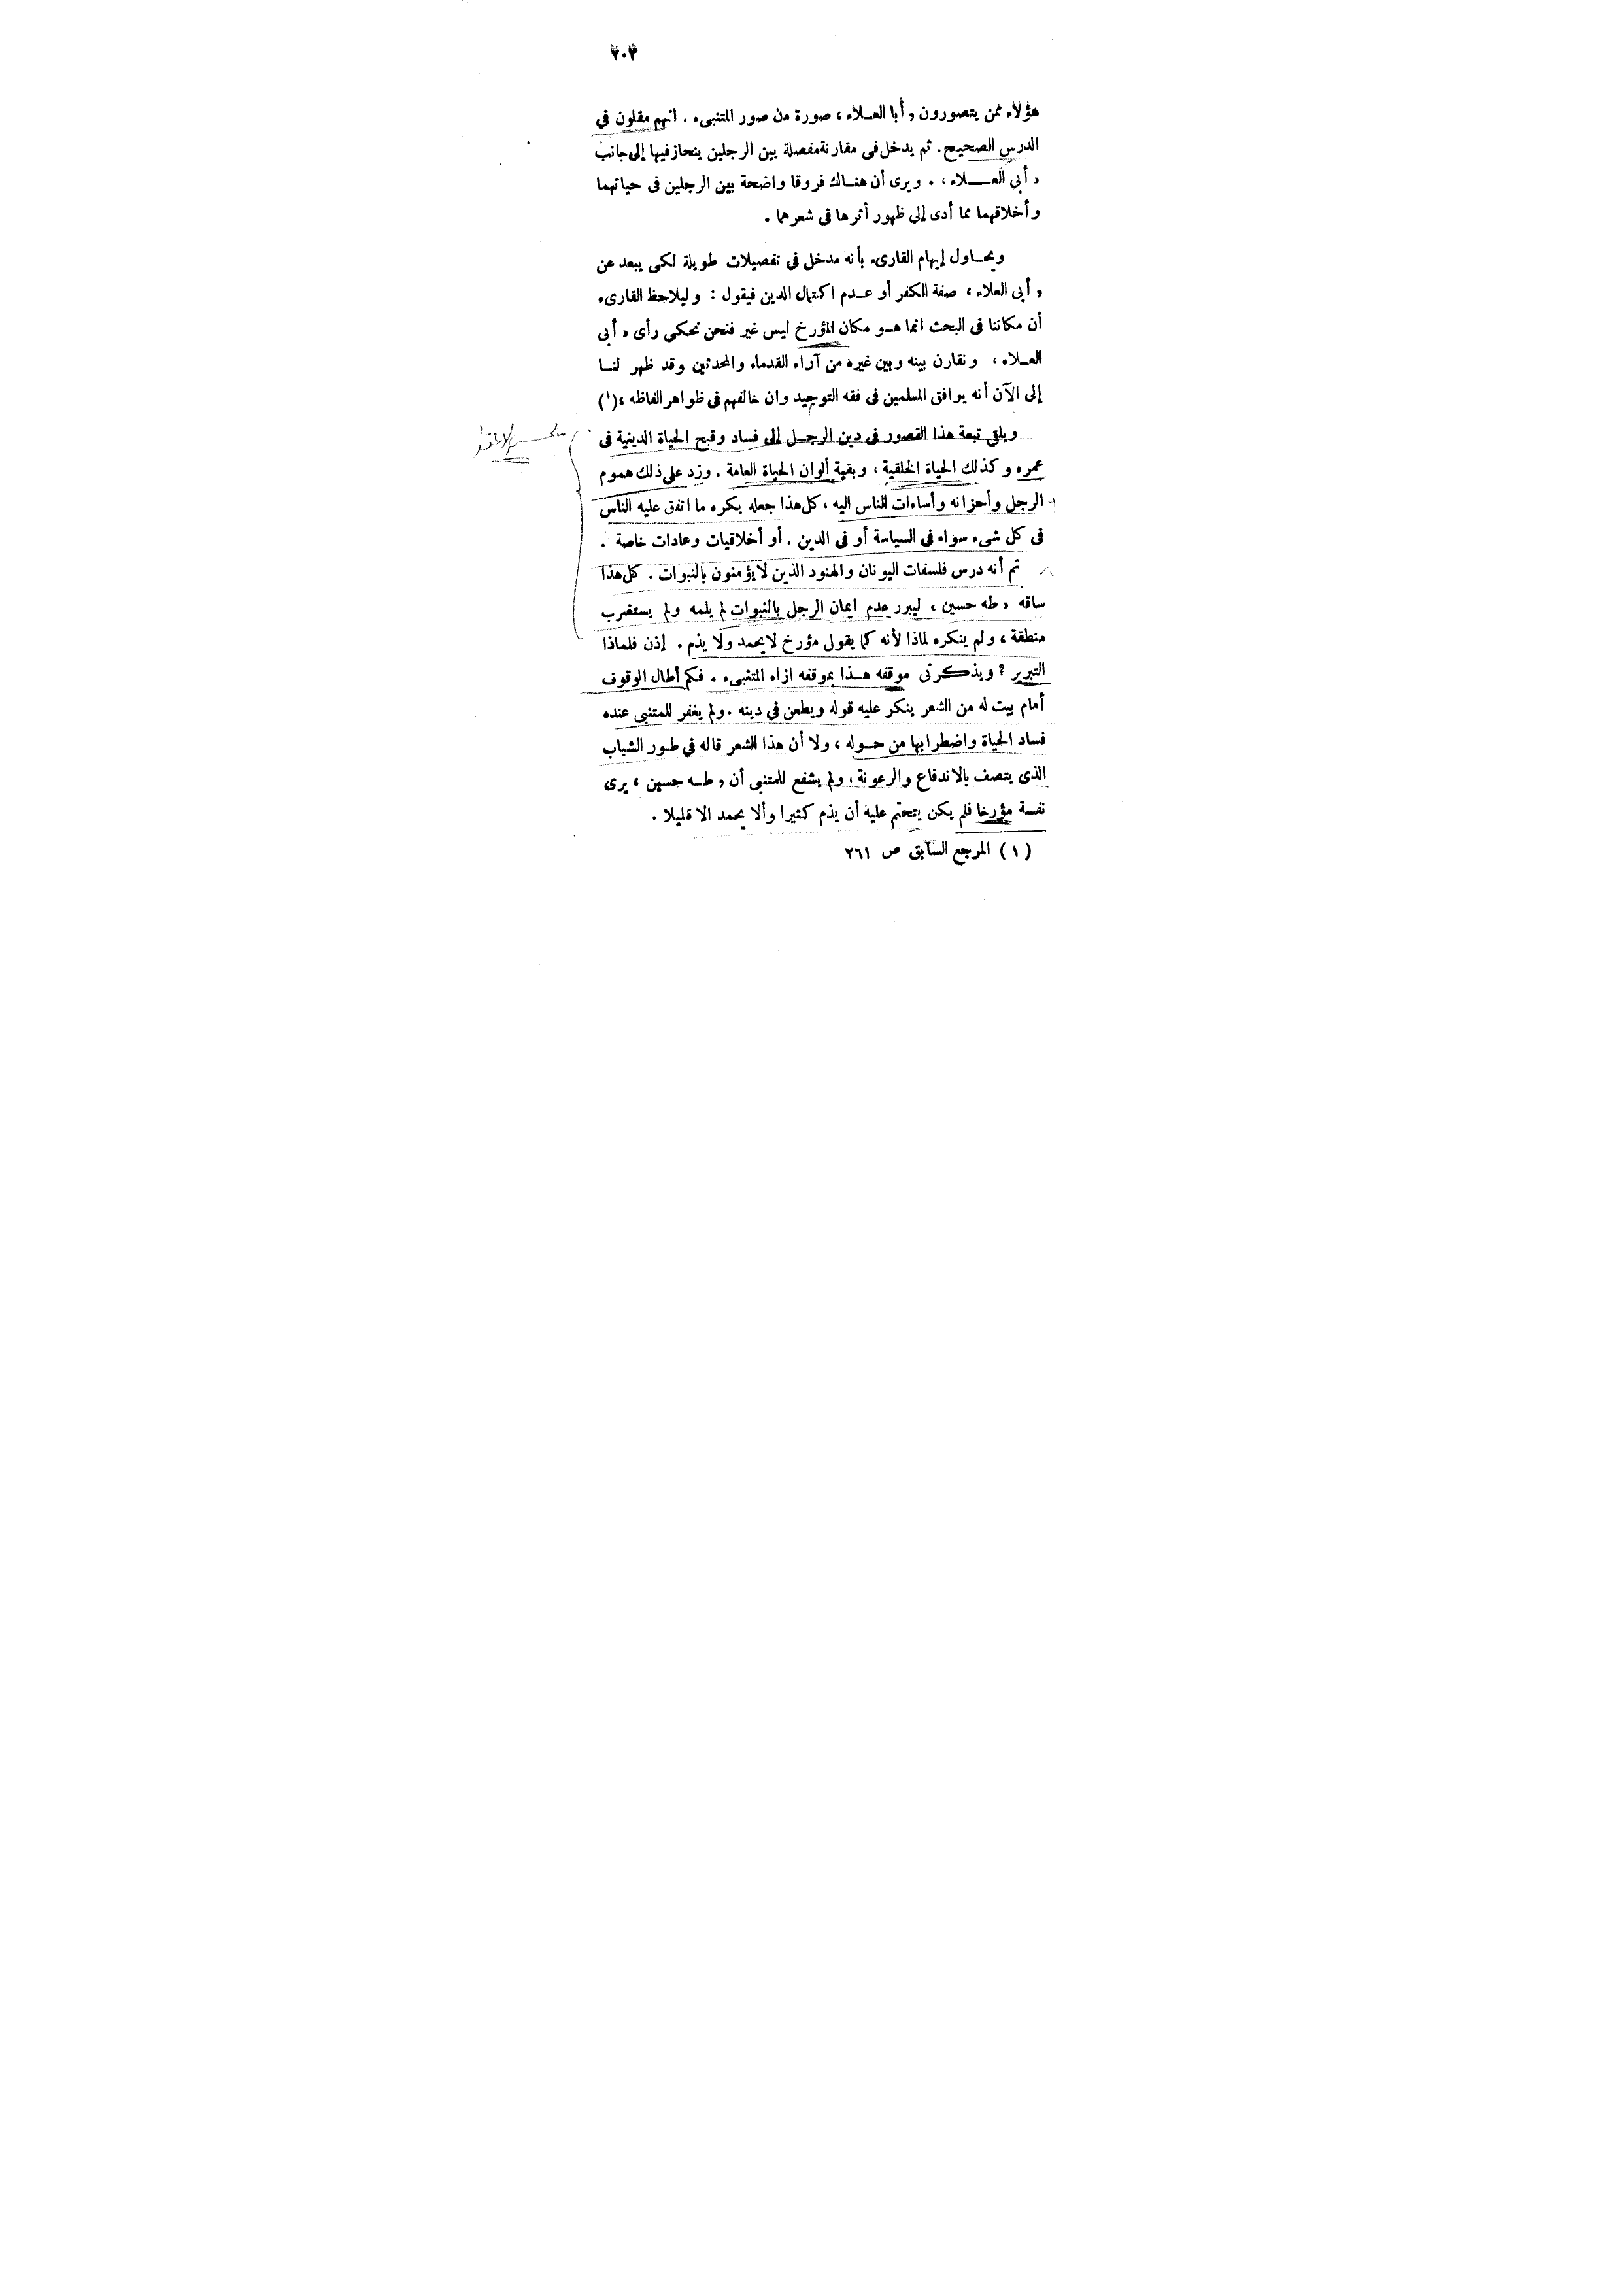 ٢٠٣
هؤلاء ممن يتصورون «أبا العلاء» صورة من صور المتنبىء. انهم مقلون في
الدرس الصحيح. ثم يدخل فى مقارنة مفصلة بين الرجلين ينحاز فيها إلى جانب
«أبى العلاء». ويرى أن هناك فروقا واضحة بين الرجلين فى حياتهما
وأخلاقهما مما أدى إلى ظهور أثرها فى شعرهما.
ويحاول إيهام القارىء بأنه مدخل فى تفصيلات طويلة لكى يبعد عن
«أبى العلاء» صفة الكفر أو عدم اكتمال الدين فيقول: وليلاحظ القارىء
أن مكاننا فى البحث انما هو مكان المؤرخ ليس غير فنحن نحكى رأى «أبى
العلاء» ونقارن بينه وبين غيره من آراء القدماء والمحدثين وقد ظهر لنا
إلى الآن أنه يوافق المسلمين فى فقه التوحيد وان خالفهم فى ظواهر الفاظه»(١)
ويلقى تبعة هذا القصور فى دين الرجل إلى فساد وقبح الحياة الدينية فى
عمره وكذلك الحياة الخلقية، وبقية ألوان الحياة العامة. وزد على ذلك هموم
الرجل وأحزانه وأساءات الناس اليه، كل هذا جعله يكره ما اتفق عليه الناس
فى كل شىء سواء فى السياسة أو فى الدين. أو أخلاقيات وعادات خاصة.
ثم أنه درس فلسفات اليونان والهنود الذين لا يؤمنون بالنبوات. كل هذا
ساقه «طه حسين» ليبرر عدم ايمان الرجل بالنبوات لم يلمه ولم يستغرب
منطقة، ولم ينكره لماذا لأنه كما يقول مؤرخ لا يحمد ولا يذم. إذن فلماذا
التبرير؟ ويذكرنى موقفه هذا بموقفه ازاء المتنبىء. فكم أطال الوقوف
أمام بيت له من الشعر ينكر عليه قوله ويطعن في دينه. ولم يغفر للمتنبى عنده
فساد الحياة واضطرابها من حوله، ولا أن هذا الشعر قاله في طور الشباب
الذى يتصف بالاندفاع والرعونة، ولم يشفع للمتنبى أن «طه حسين» يرى
نفسة مؤرخا فلم يكن يتحتم عليه أن يذم كثيرا وألا يحمد الا قليلا.
(١) المرجع السابق ص ٢٦١